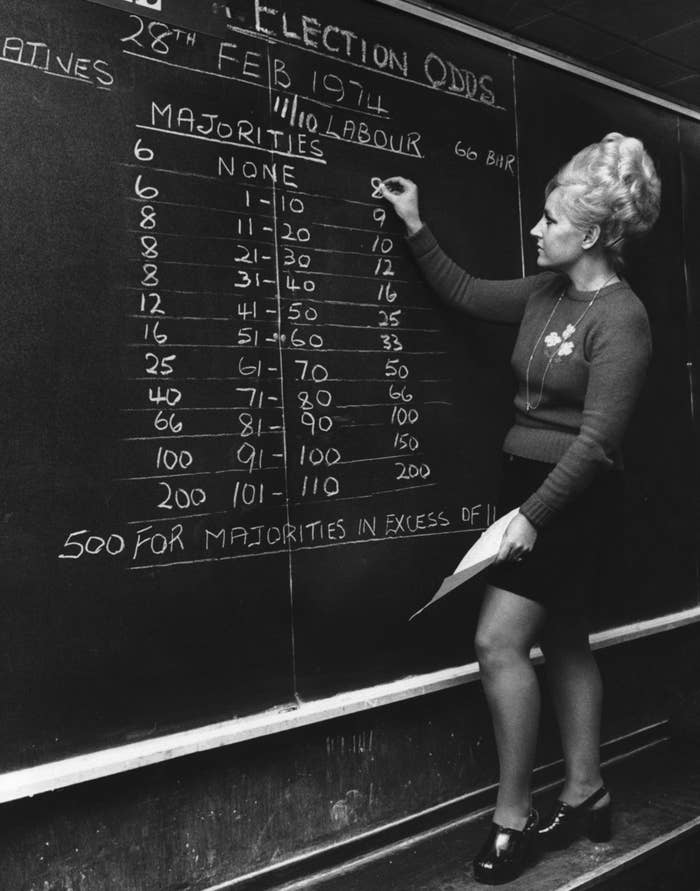 ELECTION ODDS
28TH FEB 1974
ATIVES
MAJORITIES 11/10 LABOUR 66
6 NONE 8
6 1-10 9
8 11-20 10
8 21-30 12
8 31-40 16
12 41-50 25
16 51-60 33
25 61-70 50
40 71-80 66
66 81-90 100
100 91-100 150
200 101-110 200
500 FOR MAJORITIES IN EXCESS OF 11